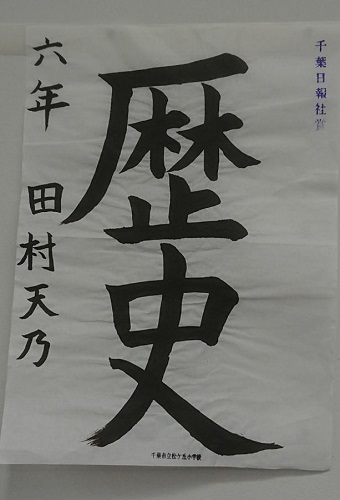 千葉日報社賞
歴史
六年 田村天乃
千葉市立松ケ丘小学校